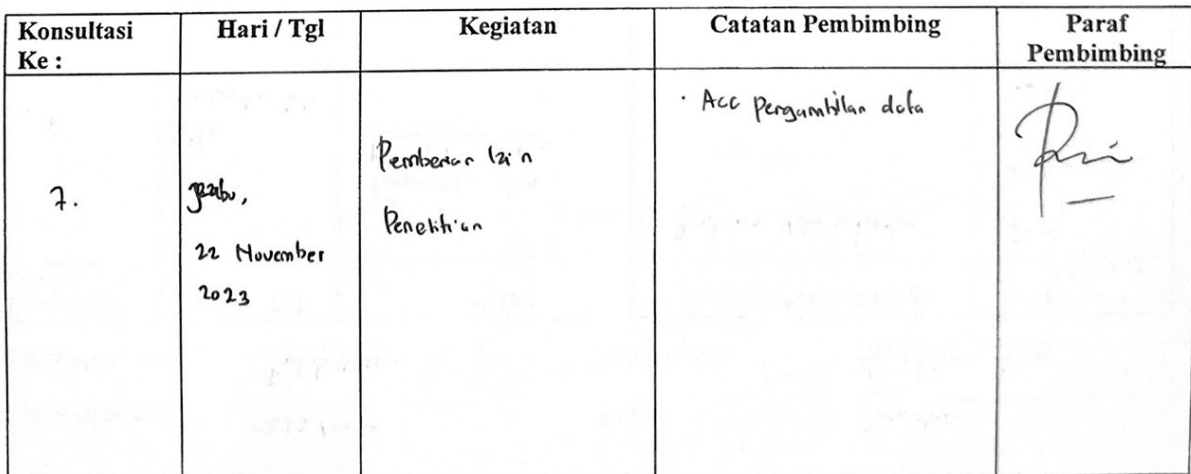 Konsultasi Ke :
Hari / Tgl
Kegiatan
Catatan Pembimbing
Paraf Pembimbing
7.
Rabu,
22 November
2023
Pemberian Izin
Penelitian
· Acc Pengambilan data